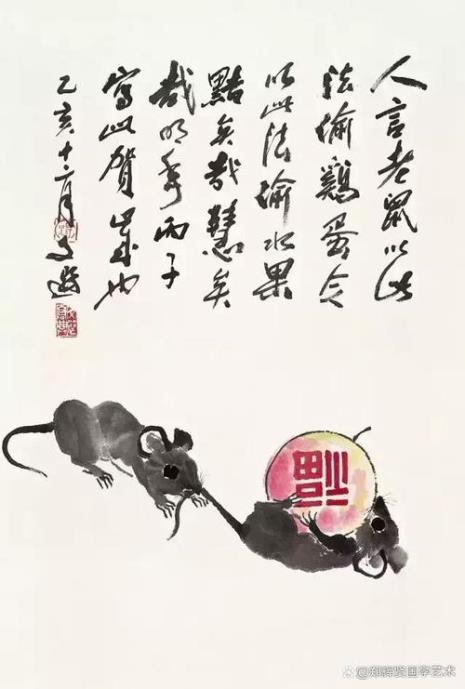 人言老鼠以此
法偷鷄蛋今
以此法偷水果
黠矣哉慧矣
哉明年丙子
寫此賀歲也
乙亥十二月
福
国学艺术